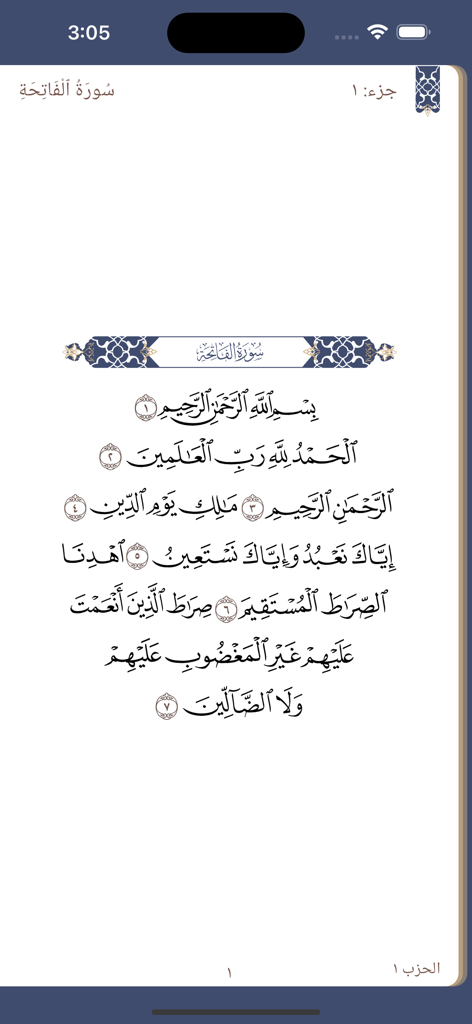 3:05
جزء: ١
سُورَةُ ٱلْفَاتِحَةِ
سُورَةُ الفَاتِحَة
بِسْمِ ٱللَّهِ ٱلرَّحْمَٰنِ ٱلرَّحِيمِ ١
ٱلْحَمْدُ لِلَّهِ رَبِّ ٱلْعَٰلَمِينَ ٢
ٱلرَّحْمَٰنِ ٱلرَّحِيمِ ٣ مَٰلِكِ يَوْمِ ٱلدِّينِ ٤
إِيَّاكَ نَعْبُدُ وَإِيَّاكَ نَسْتَعِينُ ٥ ٱهْدِنَا
ٱلصِّرَٰطَ ٱلْمُسْتَقِيمَ ٦ صِرَٰطَ ٱلَّذِينَ أَنْعَمْتَ
عَلَيْهِمْ غَيْرِ ٱلْمَغْضُوبِ عَلَيْهِمْ
وَلَا ٱلضَّآلِّينَ ٧
الحزب ١
١